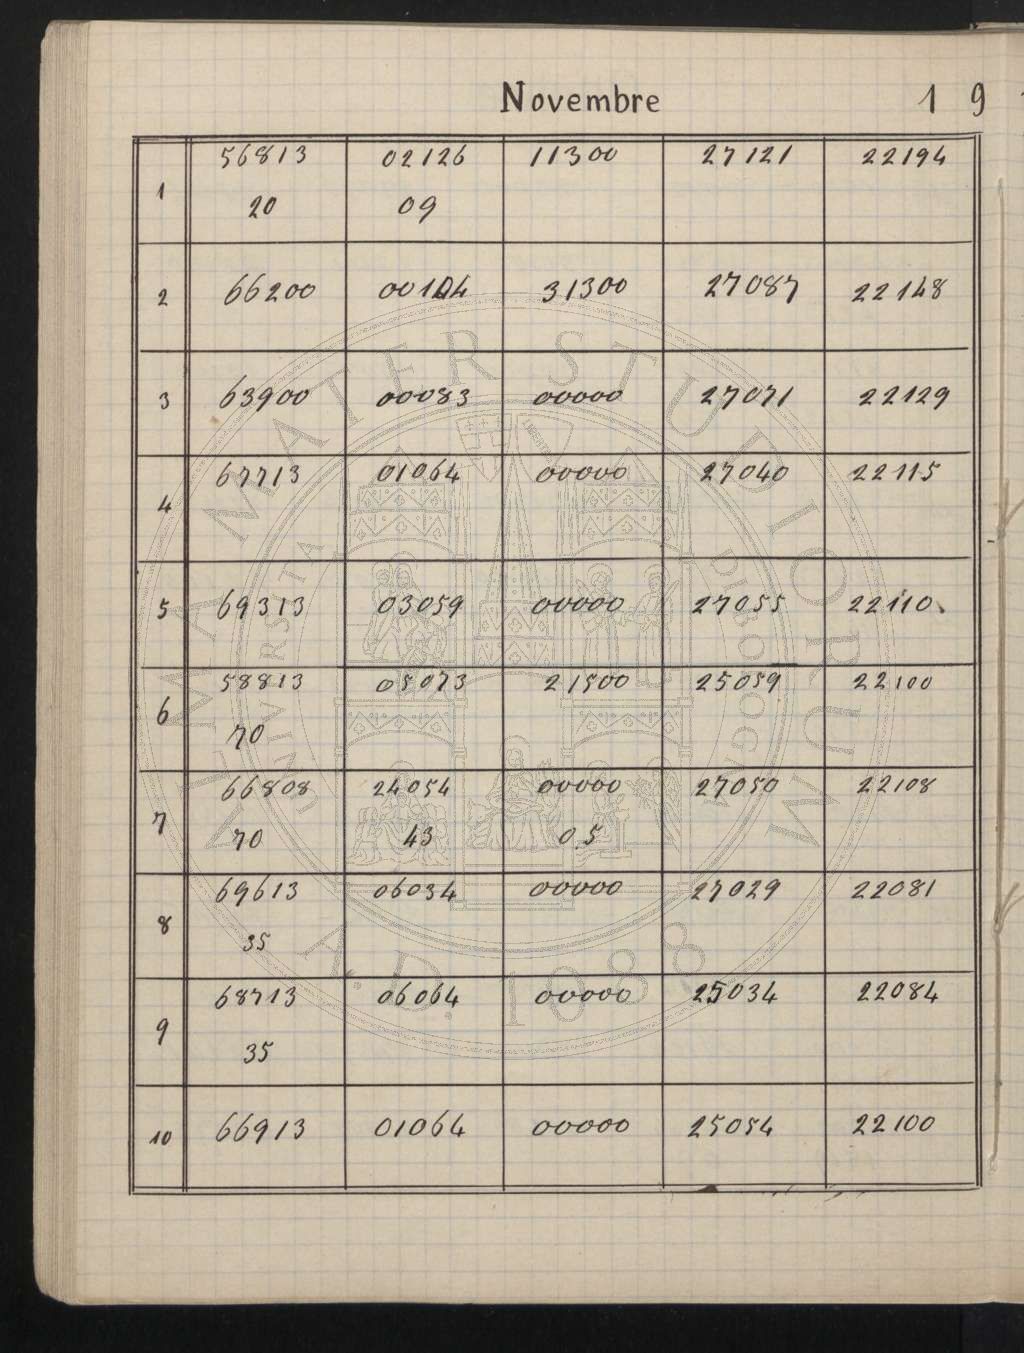 Novembre 1 9
1 56813 02126 11300 27121 22194
20 09
2 66200 00104 31300 27087 22148
3 63900 00083 00000 27071 22129
4 67713 01064 00000 27040 22115
5 69313 03059 00000 27055 22110
6 58813 05073 21500 25059 22100
70
7 66808 24054 00000 27050 22108
70 43 0.5
8 69613 06034 00000 27029 22081
35
9 68713 06064 00000 25034 22084
35
10 66913 01064 00000 25054 22100
ALMA MATER STUDIORUM
A.D. 1088